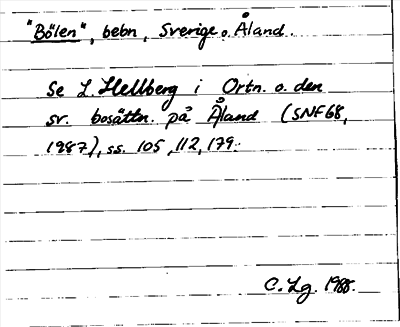 "Bölen", bebn, Sverige o. Åland.
Se L. Hellberg i Ortn. o. den
sv. bosättn. på Åland (SNF 68,
1987), ss. 105, 112, 179.
C. Lg. 1988.